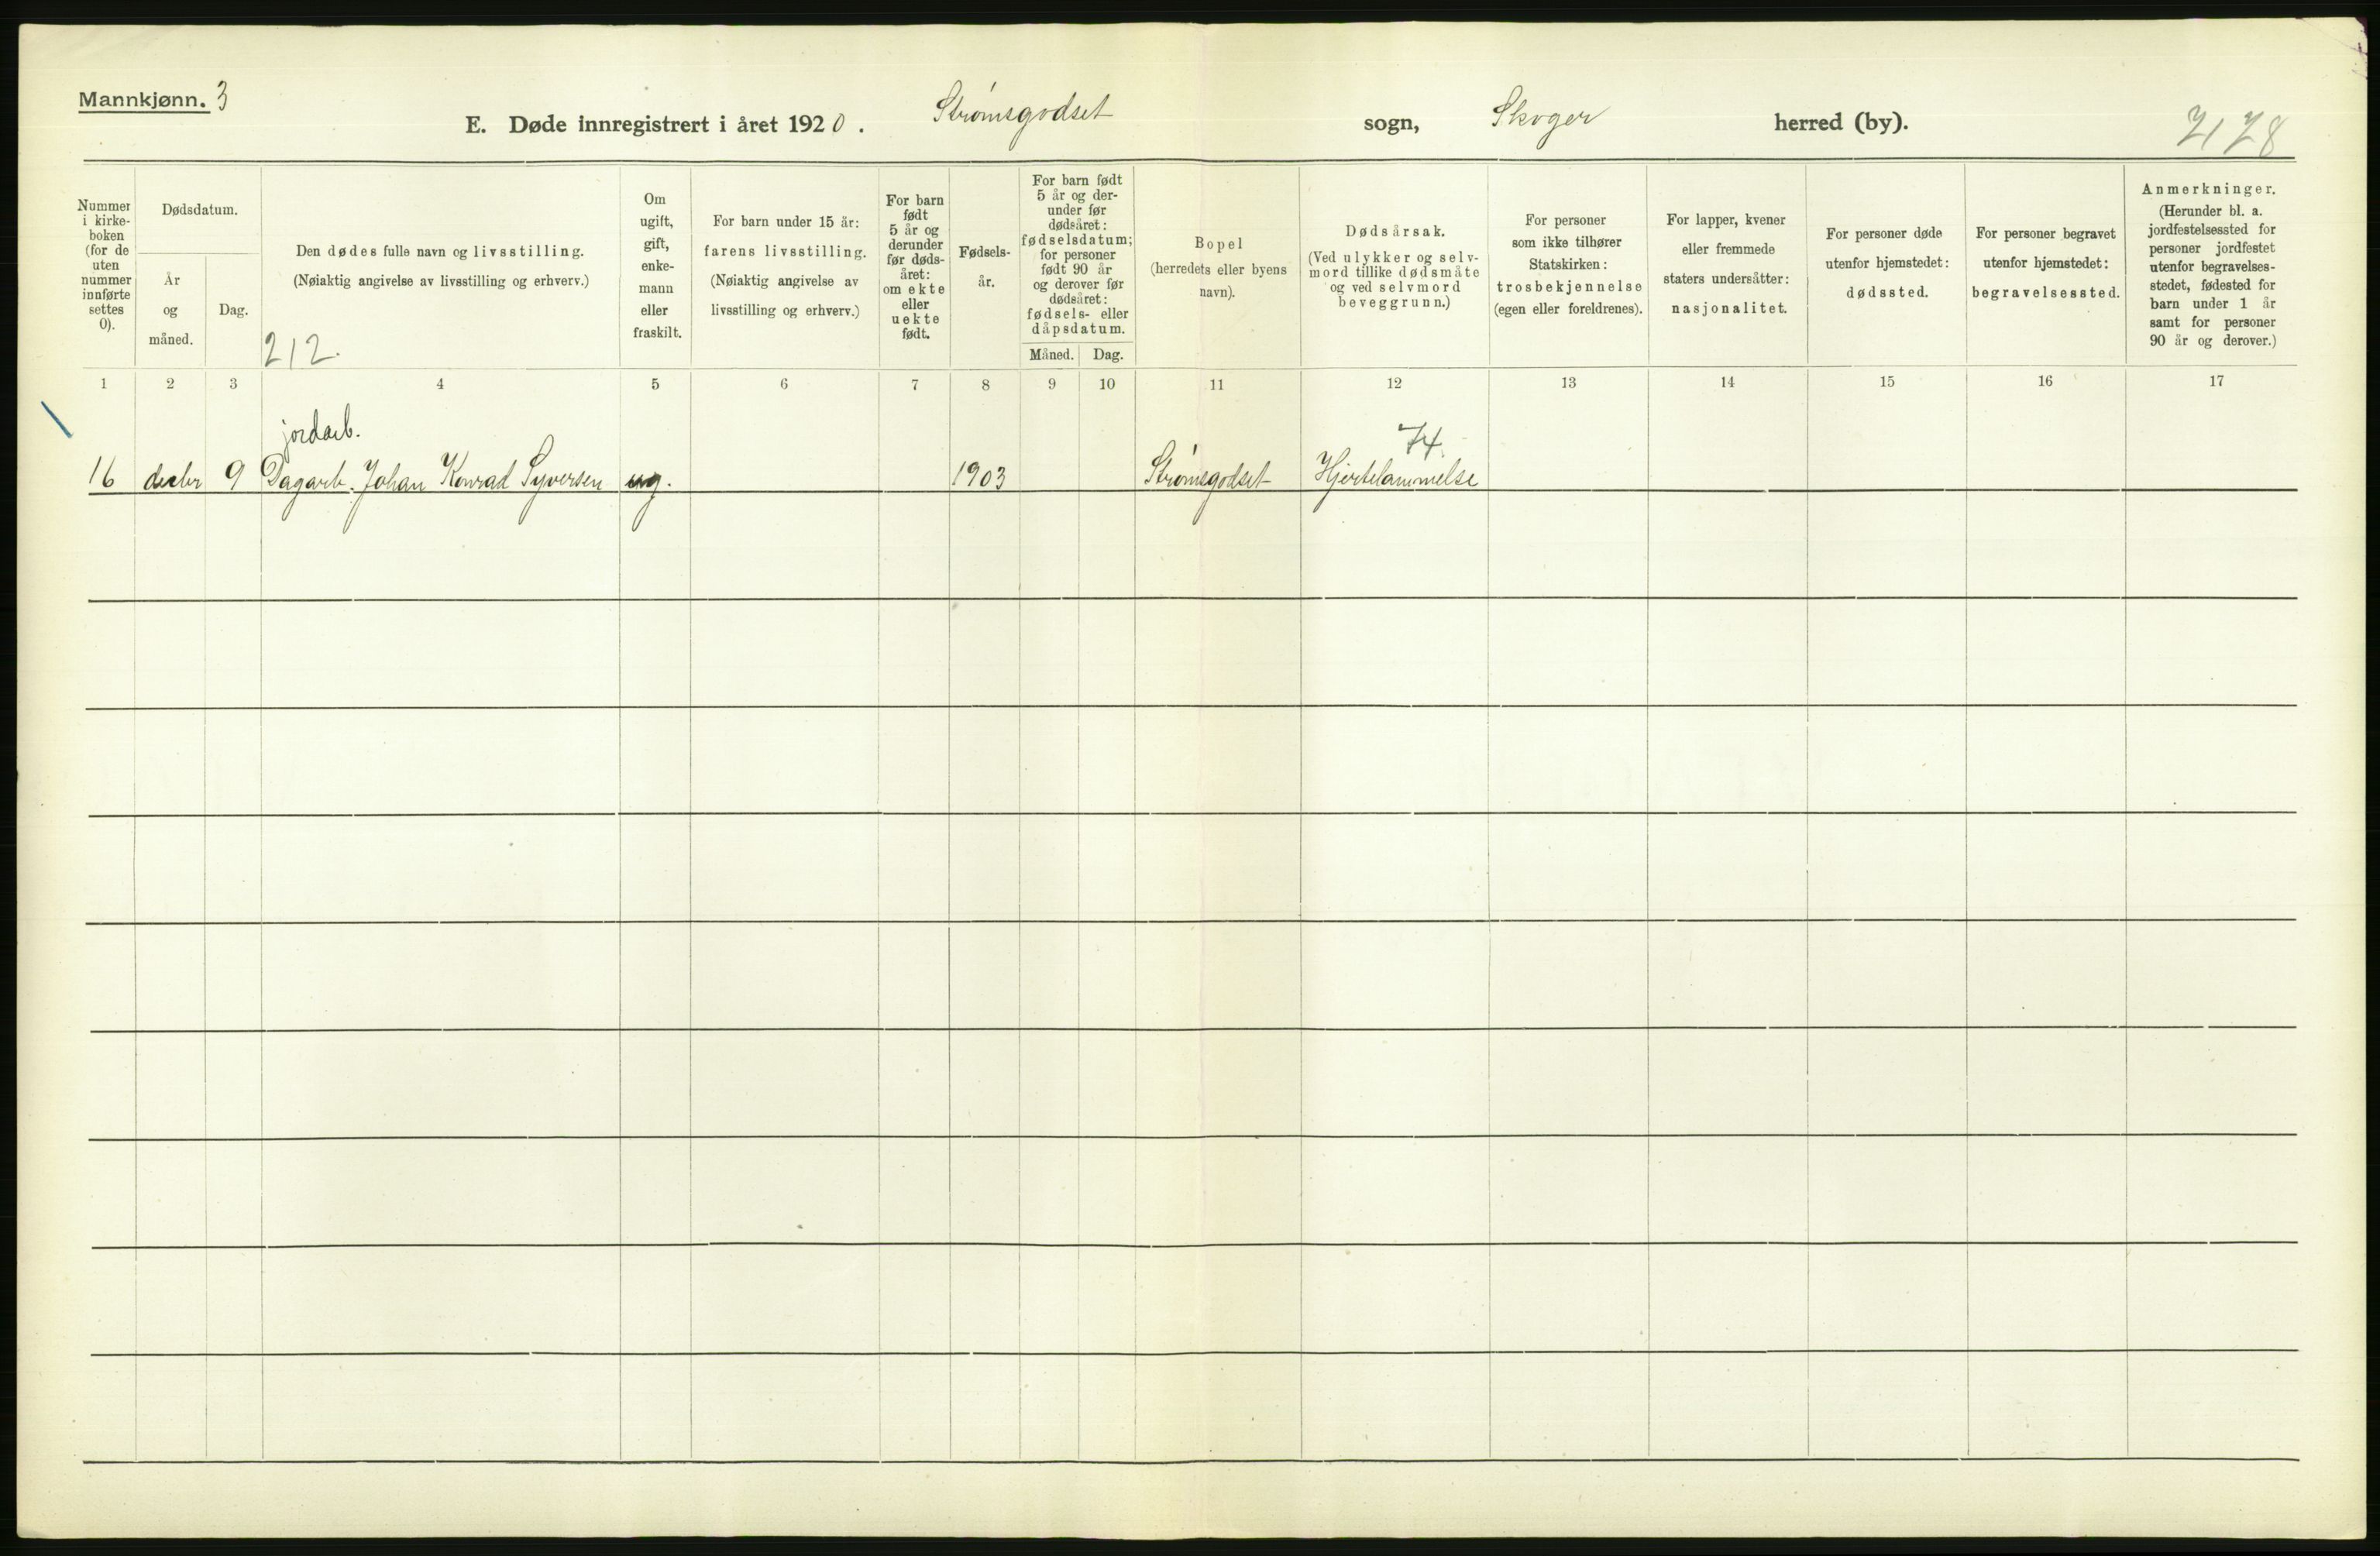 Mannkjønn. 3
E. Døde innregistrert i året 1920. Strømsgodset sogn, Skoger herred (by).
2128
Nummer i kirke- boken (for de uten nummer innførte settes 0).
Dødsdatum.
År og måned.
Dag.
Den dødes fulle navn og livsstilling.
(Nøiaktig angivelse av livsstilling og erhverv.)
212.
Om ugift, gift, enke- mann eller fraskilt.
For barn under 15 år:
farens livsstilling.
(Nøiaktig angivelse av
livsstilling og erhverv.)
For barn født 5 år og derunder før døds- året: om ekte eller uekte født.
Fødsels- år.
For barn født 5 år og der- under før dødsåret: fødselsdatum; for personer født 90 år og derover før dødsåret: fødsels- eller dåpsdatum.
Måned. Dag.
Bopel
(herredets eller byens
navn).
Dødsårsak.
(Ved ulykker og selv-
mord tillike dødsmåte
og ved selvmord
beveggrunn.)
For personer
som ikke tilhører
Statskirken:
trosbekjennelse
(egen eller foreldrenes).
For lapper, kvener
eller fremmede
staters undersåtter:
nasjonalitet.
For personer døde
utenfor hjemstedet:
dødssted.
For personer begravet
utenfor hjemstedet:
begravelsessted.
Anmerkninger.
(Herunder bl. a.
jordfestelsessted for
personer jordfestet
utenfor begravelses-
stedet, fødested for
barn under 1 år
samt for personer
90 år og derover.)
1 2 3 4 5 6 7 8 9 10 11 12 13 14 15 16 17
jordarb.
74.
16 decbr 9 Dagarb. Johan Konrad Syversen ug. 1903 Strømsgodset Hjertelammelse